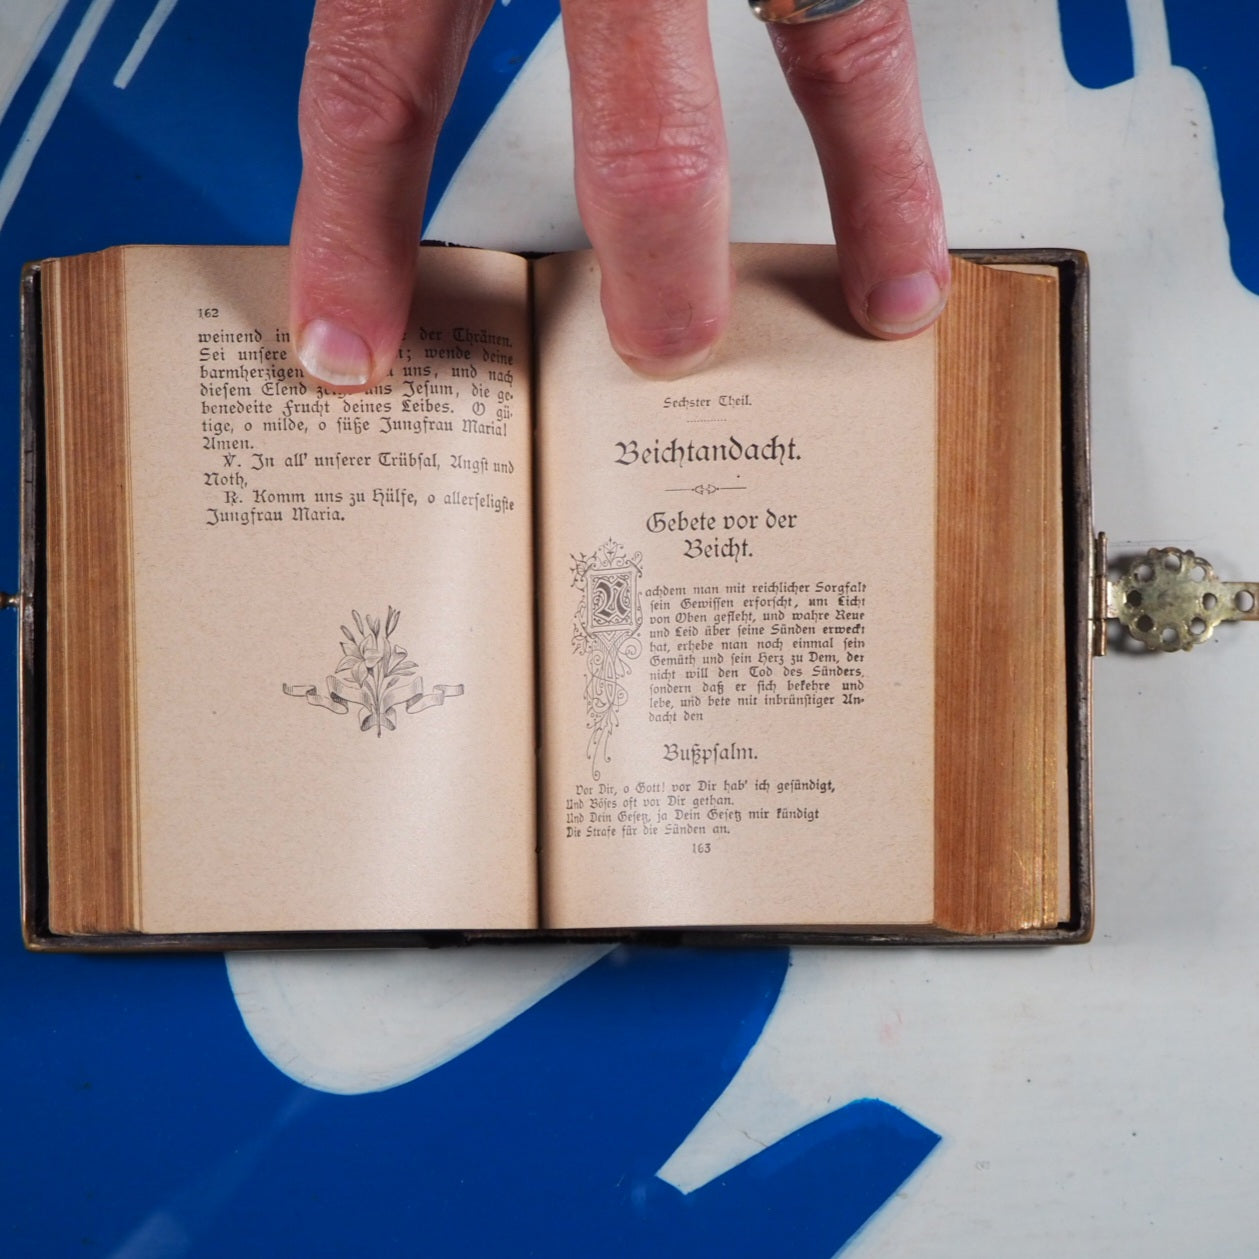 162
weinend in der Thränen.
Sei unsere ; wende deine
barmherzigen uns, und nach
diesem Elend uns Jesum, die ge-
benedeite Frucht deines Leibes. O gü-
tige, o milde, o süße Jungfrau Maria!
Amen.
℣. In all' unserer Trübsal, Angst und
Noth,
℟. Komm uns zu Hülfe, o allerseligste
Jungfrau Maria.
Sechster Theil.
Beichtandacht.
Gebete vor der
Beicht.
Nachdem man mit reichlicher Sorgfalt
sein Gewissen erforscht, um Licht
von Oben gefleht, und wahre Reue
und Leid über seine Sünden erweckt
hat, erhebe man noch einmal sein
Gemüth und sein Herz zu Dem, der
nicht will den Tod des Sünders,
sondern daß er sich bekehre und
lebe, und bete mit inbrünstiger An-
dacht den
Bußpsalm.
Vor Dir, o Gott! vor Dir hab' ich gesündigt,
Und Böses oft vor Dir gethan.
Und Dein Gesetz, ja Dein Gesetz mir kündigt
Die Strafe für die Sünden an.
163